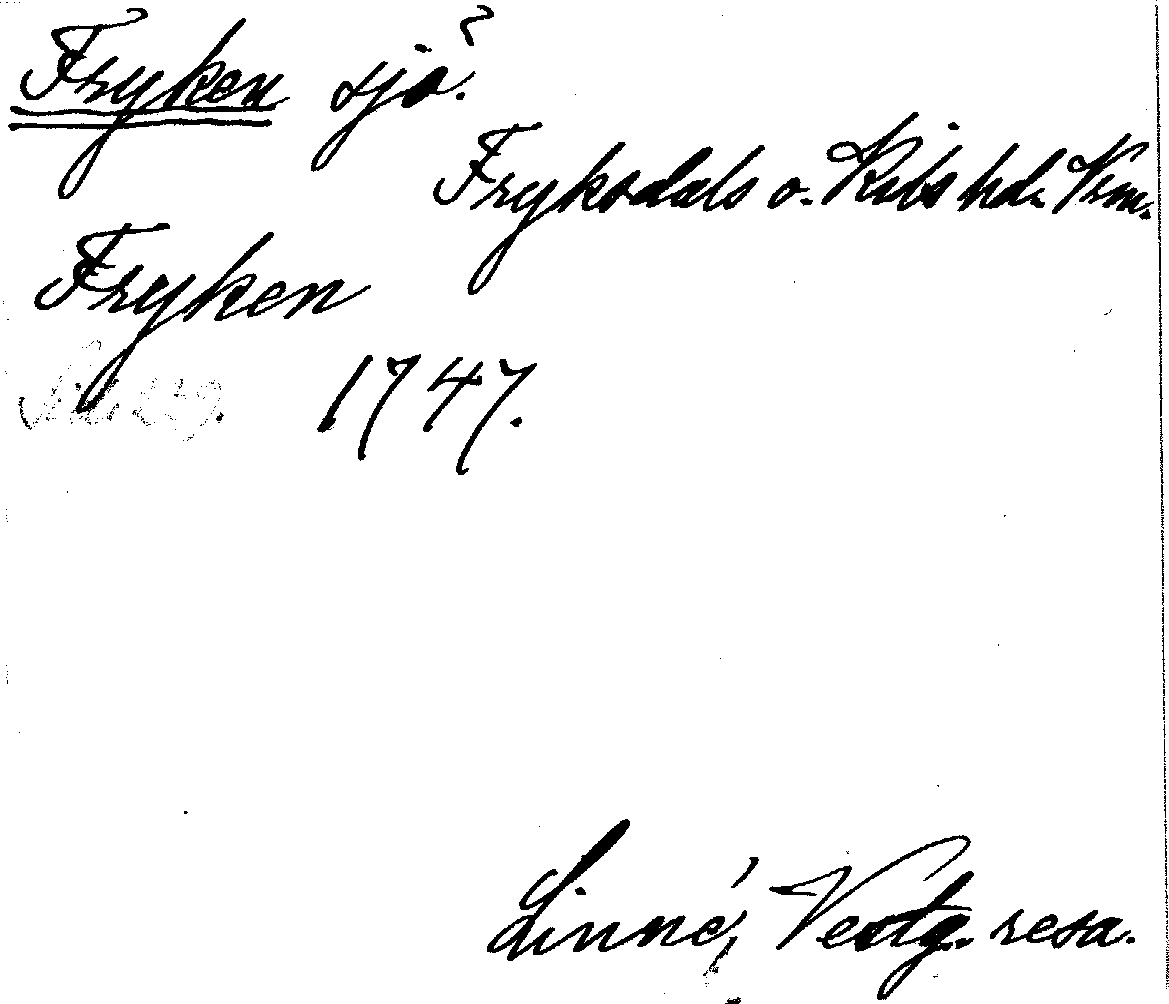 Fryken sjö.
Fryksdals o. Kils hd. Vrm.
Fryken
Sid. 229. 1747.
Linné, Vestg. resa.